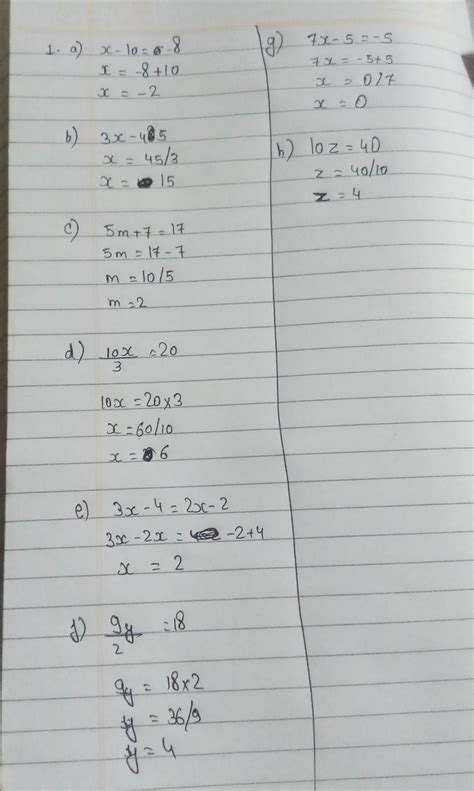 1. a) x-10=-8
x = -8+10
x = -2
b) 3x-45
x = 45/3
x = 15
c) 5m+7=17
5m=17-7
m=10/5
m=2
d) 10x/3 =20
10x=20x3
x=60/10
x=6
e) 3x-4=2x-2
3x-2x= -2+4
x = 2
f) 9y/2 =18
9y = 18x2
y = 36/9
y=4
g) 7x-5=-5
7x=-5+5
x = 0/7
x = 0
h) 10z=40
z=40/10
z=4